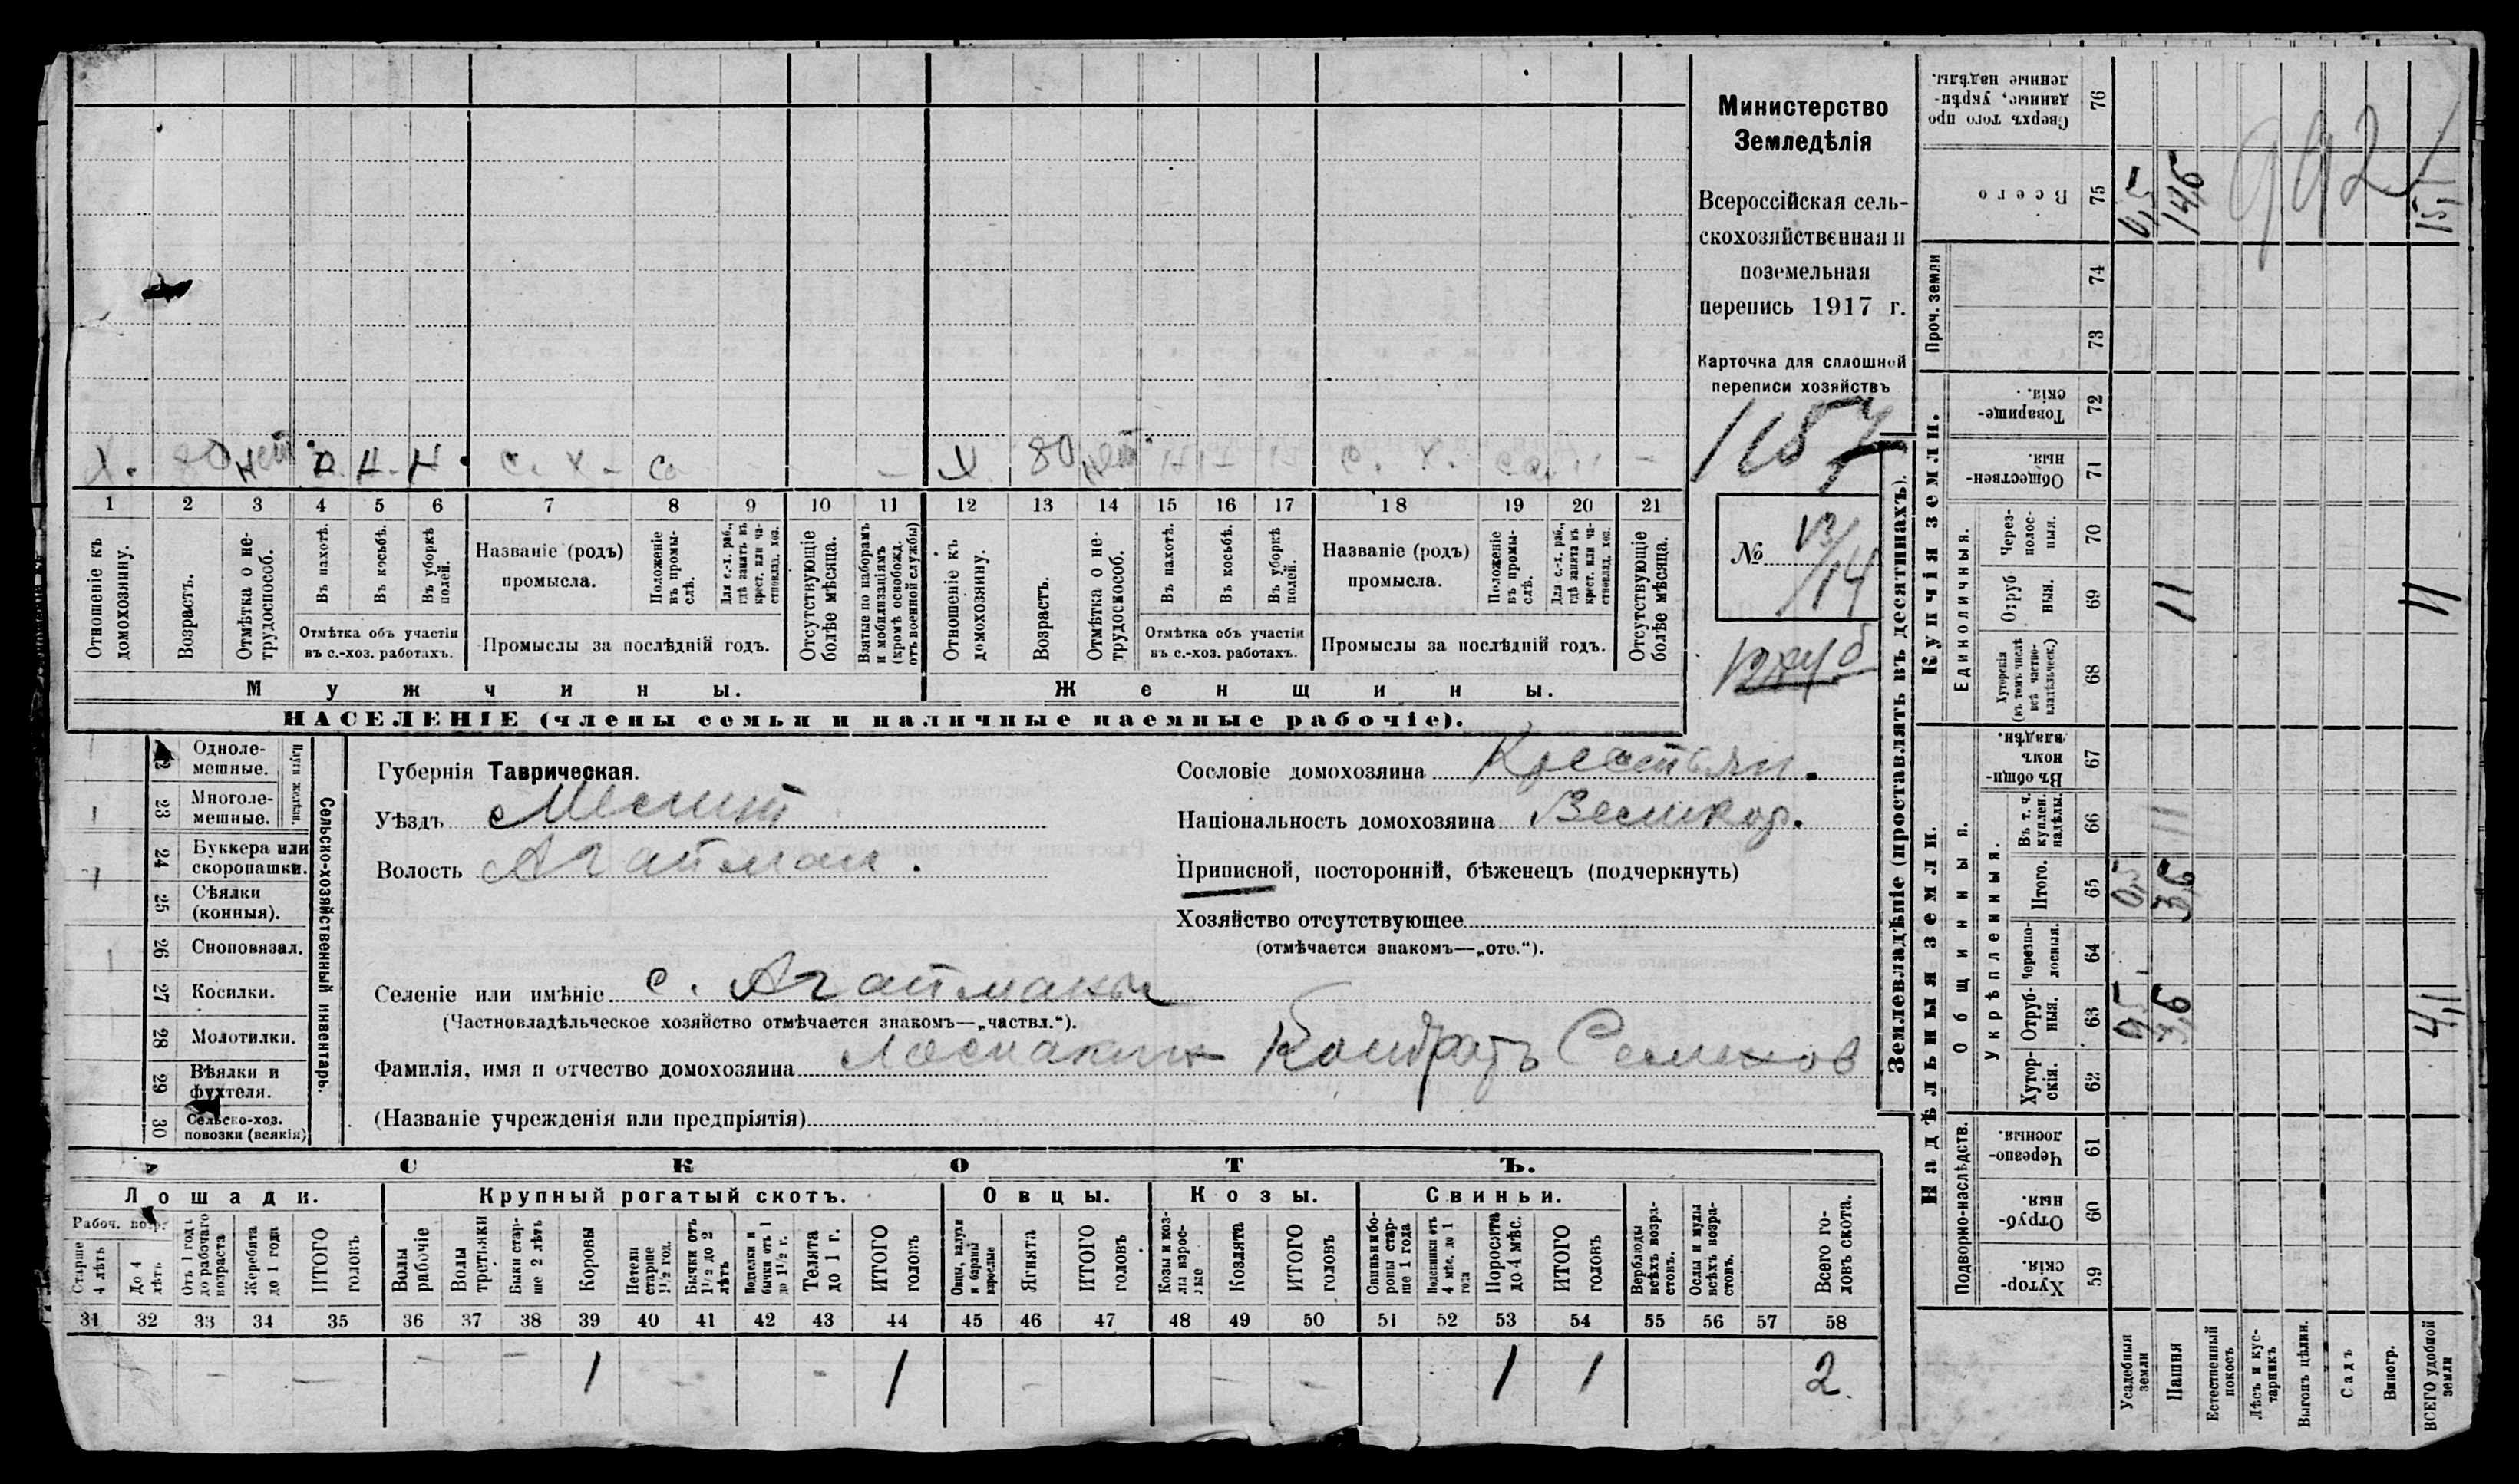 Министерство
Земледѣлія
Всероссійская сель-
скохозяйственная и
поземельная
перепись 1917 г.
Карточка для сплошной
переписи хозяйствъ
1157
№ 13/14
Х. 80 нет н. н. н. с. х. со
Х 80 нет н н н с. х. со.
1 2 3 4 5 6 7 8 9 10 11 12 13 14 15 16 17 18 19 20 21
Отношеніе къ домохозяину.
Возрастъ.
Отмѣтка о не-трудоспособ.
Въ пахотѣ.
Въ косьбѣ.
Въ уборкѣ полей.
Отмѣтка объ участіи
въ с.-хоз. работахъ.
Названіе (родъ)
промысла.
Положеніе въ промы-слѣ.
Для с.-х. раб., гдѣ занятъ въ крест. или ча-стновлад. хоз.
Промыслы за послѣдній годъ.
Отсутствующіе болѣе мѣсяца.
Взятые по наборамъ и мобилизаціямъ (кромѣ освобожд. отъ военной службы)
Отношеніе къ домохозяину.
Возрастъ.
Отмѣтка о не-трудоспособ.
Въ пахотѣ.
Въ косьбѣ.
Въ уборкѣ полей.
Отмѣтка объ участіи
въ с.-хоз. работахъ.
Названіе (родъ)
промысла.
Положеніе въ промы-слѣ.
Для с.-х. раб., гдѣ занята въ крест. или ча-стновлад. хоз.
Промыслы за послѣдній годъ.
Отсутствующіе болѣе мѣсяца.
Мужчины.
Женщины.
НАСЕЛЕНІЕ (члены семьи и наличные наемные рабочіе).
Сельско-хозяйственный инвентарь.
Плуги желѣзн.
22 Одноле-мешные.
23 Многоле-мешные.
24 Буккера или скоропашки.
25 Сѣялки (конныя).
26 Сноповязал.
27 Косилки.
28 Молотилки.
29 Вѣялки и фухтеля.
30 Сельско-хоз. повозки (всякія)
Губернія Таврическая.
Уѣздъ Мелит
Волость Агайман.
Селеніе или имѣніе с. Агайманы
(Частновладѣльческое хозяйство отмѣчается знакомъ—„частвл.“).
Фамилія, имя и отчество домохозяина Лоснакин Кондратъ Семенов
(Названіе учрежденія или предпріятія)
Сословіе домохозяина Крестьян.
Національность домохозяина Великор.
Приписной, посторонній, бѣженецъ (подчеркнуть)
Хозяйство отсутствующее
(отмѣчается знакомъ—„отс.“).
СКОТЪ.
Лошади. Крупный рогатый скотъ. Овцы. Козы. Свиньи.
Рабоч. возр.
Старше 4 лѣтъ
До 4 лѣтъ
Отъ 1 годъ до рабочаго возраста
Жеребята до 1 года
ИТОГО головъ
Волы рабочіе
Волы третьяки
Быки стар-ше 2 лѣтъ
Коровы
Нетели старше 1½ год.
Бычки отъ 1½ до 2 лѣтъ
Подтелки и бычки отъ 1 до 1½ г.
Телята до 1 г.
ИТОГО головъ
Овцы, валухи и бараны взрослые
Ягнята
ИТОГО головъ
Козы и коз-лы взрос-лые
Козлята
ИТОГО головъ
Свиньи и бо-ровы стар-ше 1 года
Подсвинки отъ 4 мѣс. до 1 года
Поросята до 4 мѣс.
ИТОГО головъ
Верблюды всѣхъ возра-стовъ.
Ослы и мулы всѣхъ возра-стовъ.
Всего го-ловъ скота.
31 32 33 34 35 36 37 38 39 40 41 42 43 44 45 46 47 48 49 50 51 52 53 54 55 56 57 58
1 1 1 1 2.
Землевладѣніе (проставлять въ десятинахъ).
Надѣльныя земли.
Купчія земли.
Проч. земли
Подворно-наслѣдств.
Общинныя.
Укрѣпленныя.
Единоличныя.
Хутор-скія. 59
Отруб-ныя. 60
Черезпо-лосныя. 61
Хутор-скія. 62
Отруб-ныя. 63
Черезпо-лосныя. 64
Итого. 65
Въ т. ч. куплен. надѣлы. 66
Въ общи-номъ владѣн. 67
Хуторскія (въ томъ числѣ всѣ частно-владѣльческ.) 68
Отруб-ныя. 69
Через-полос-ныя. 70
Обществен-ныя. 71
Товарище-скія. 72
73
74
Всего 75
Сверхъ того про-данные, укрѣп-ленные надѣлы. 76
Усадебныя земли 0,5 0,5 0,5
Пашня 3,6 3,6 11 11 14,6
Естественный покосъ
Лѣсъ и кус-тарникъ
Выгонъ цѣлин.
Садъ
Виногр.
ВСЕГО удобной земли 4,1 11 15,1
992